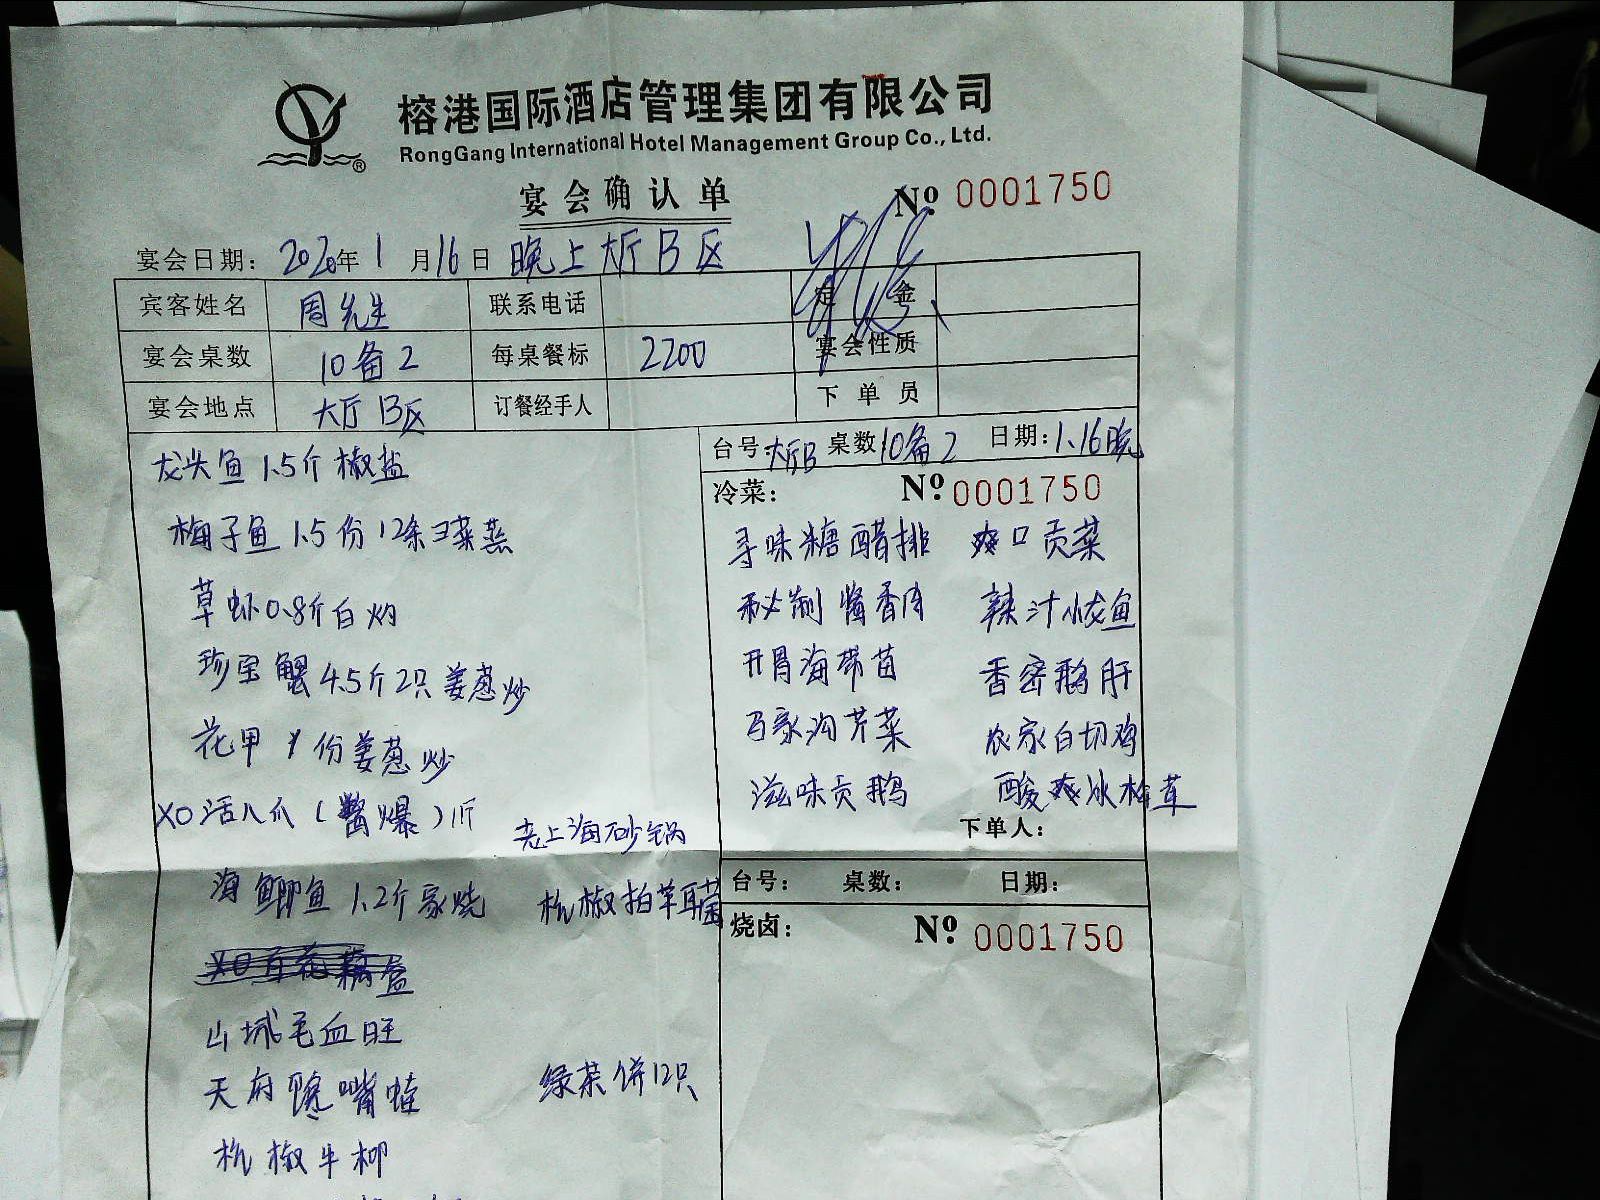 榕港国际酒店管理集团有限公司
RongGang International Hotel Management Group Co., Ltd.
宴会确认单
№ 0001750
宴会日期：2020年1月16日 晚上大厅B区
宾客姓名 周先生 联系电话 定金
宴会桌数 10备2 每桌餐标 2200 宴会性质
宴会地点 大厅B区 订餐经手人 下单员
龙头鱼1.5斤椒盐
梅子鱼1.5份12条 菜蒸
草虾0.8斤白灼
珍宝蟹4.5斤2只姜葱炒
花甲 份姜葱炒
XO活八爪(酱爆)1斤
老上海砂锅
海鲫鱼1.2斤家烧
杭椒拍羊耳菌
XO百花藕盒
山城毛血旺
天府馋嘴蛙
绿茶饼12只
杭椒牛柳
台号：大厅B 桌数10备2 日期：1.16晚
冷菜： № 0001750
寻味糖醋排 爽口贡菜
秘制酱香肉 辣汁小龙鱼
开胃海带苗 香密鹅肝
马家沟芹菜 农家白切鸡
滋味贡鹅 酸爽冰梅茸
下单人：
台号： 桌数： 日期：
烧卤： № 0001750